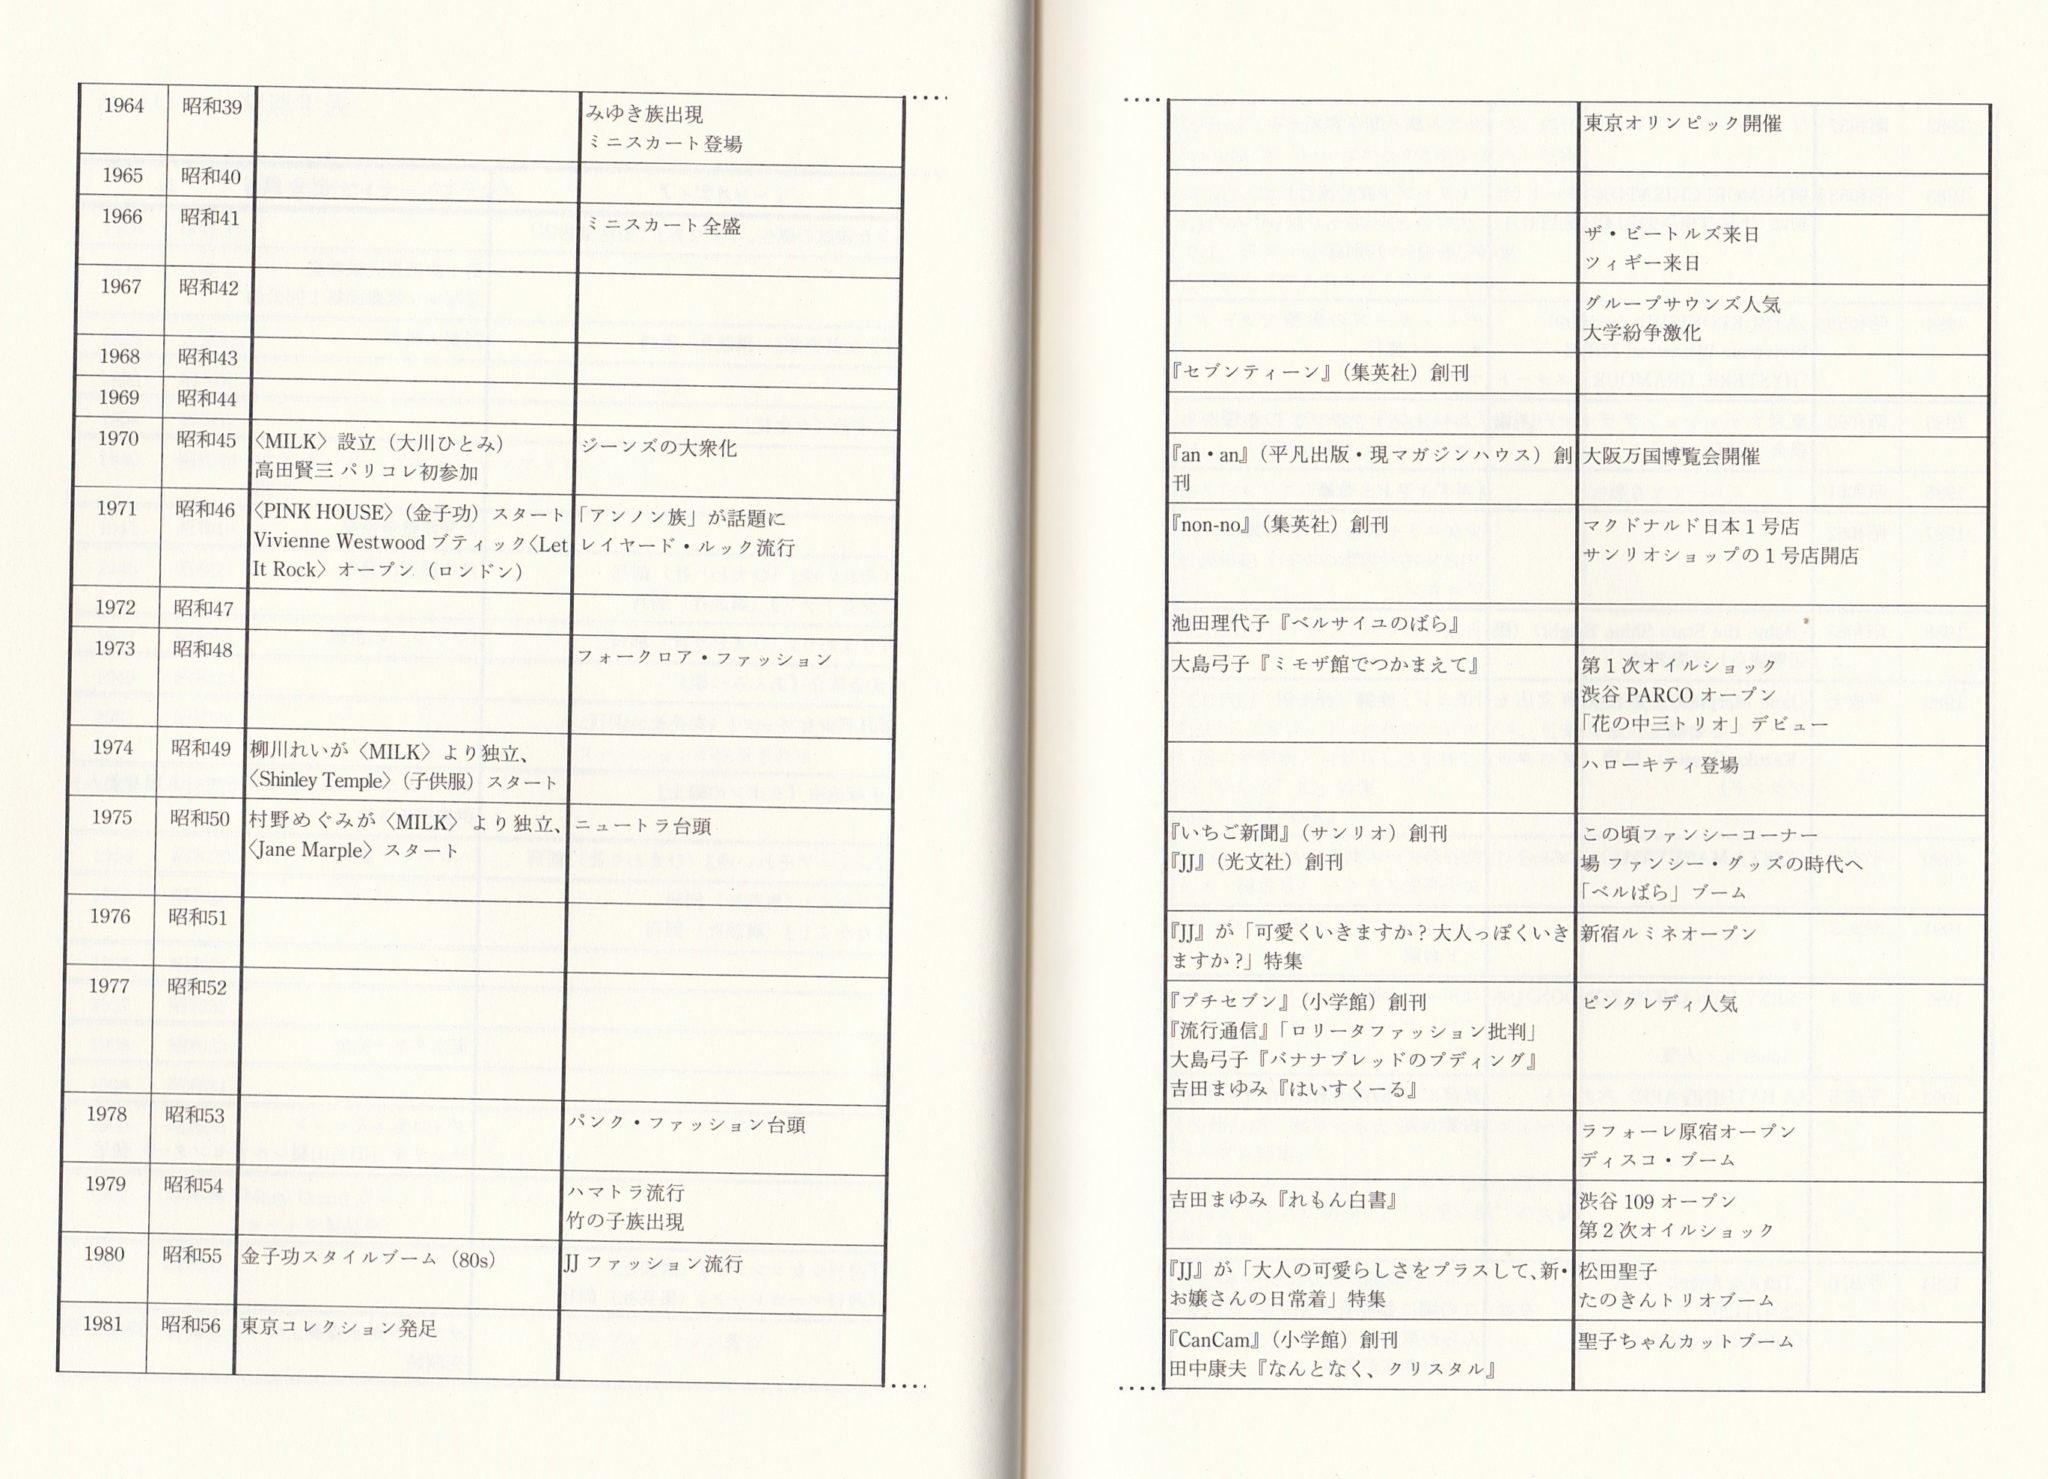 1964 昭和39 みゆき族出現
ミニスカート登場
1965 昭和40
1966 昭和41 ミニスカート全盛
1967 昭和42
1968 昭和43
1969 昭和44
1970 昭和45 〈MILK〉設立（大川ひとみ） ジーンズの大衆化
高田賢三 パリコレ初参加
1971 昭和46 〈PINK HOUSE〉（金子功）スタート 「アンノン族」が話題に
Vivienne Westwood ブティック〈Let レイヤード・ルック流行
It Rock〉オープン（ロンドン）
1972 昭和47
1973 昭和48 フォークロア・ファッション
1974 昭和49 柳川れいが〈MILK〉より独立、
〈Shinley Temple〉（子供服）スタート
1975 昭和50 村野めぐみが〈MILK〉より独立、 ニュートラ台頭
〈Jane Marple〉スタート
1976 昭和51
1977 昭和52
1978 昭和53 パンク・ファッション台頭
1979 昭和54 ハマトラ流行
竹の子族出現
1980 昭和55 金子功スタイルブーム（80s） JJ ファッション流行
1981 昭和56 東京コレクション発足
東京オリンピック開催
ザ・ビートルズ来日
ツィギー来日
グループサウンズ人気
大学紛争激化
『セブンティーン』（集英社）創刊
『an・an』（平凡出版・現マガジンハウス）創 大阪万国博覧会開催
刊
『non-no』（集英社）創刊 マクドナルド日本１号店
サンリオショップの１号店開店
池田理代子『ベルサイユのばら』
大島弓子『ミモザ館でつかまえて』 第１次オイルショック
渋谷 PARCO オープン
「花の中三トリオ」デビュー
ハローキティ登場
『いちご新聞』（サンリオ）創刊 この頃ファンシーコーナー
『JJ』（光文社）創刊 場 ファンシー・グッズの時代へ
「ベルばら」ブーム
『JJ』が「可愛くいきますか？大人っぽくいき 新宿ルミネオープン
ますか？」特集
『プチセブン』（小学館）創刊 ピンクレディ人気
『流行通信』「ロリータファッション批判」
大島弓子『バナナブレッドのプディング』
吉田まゆみ『はいすくーる』
ラフォーレ原宿オープン
ディスコ・ブーム
吉田まゆみ『れもん白書』 渋谷 109 オープン
第２次オイルショック
『JJ』が「大人の可愛らしさをプラスして、新・ 松田聖子
お嬢さんの日常着」特集 たのきんトリオブーム
『CanCam』（小学館）創刊 聖子ちゃんカットブーム
田中康夫『なんとなく、クリスタル』